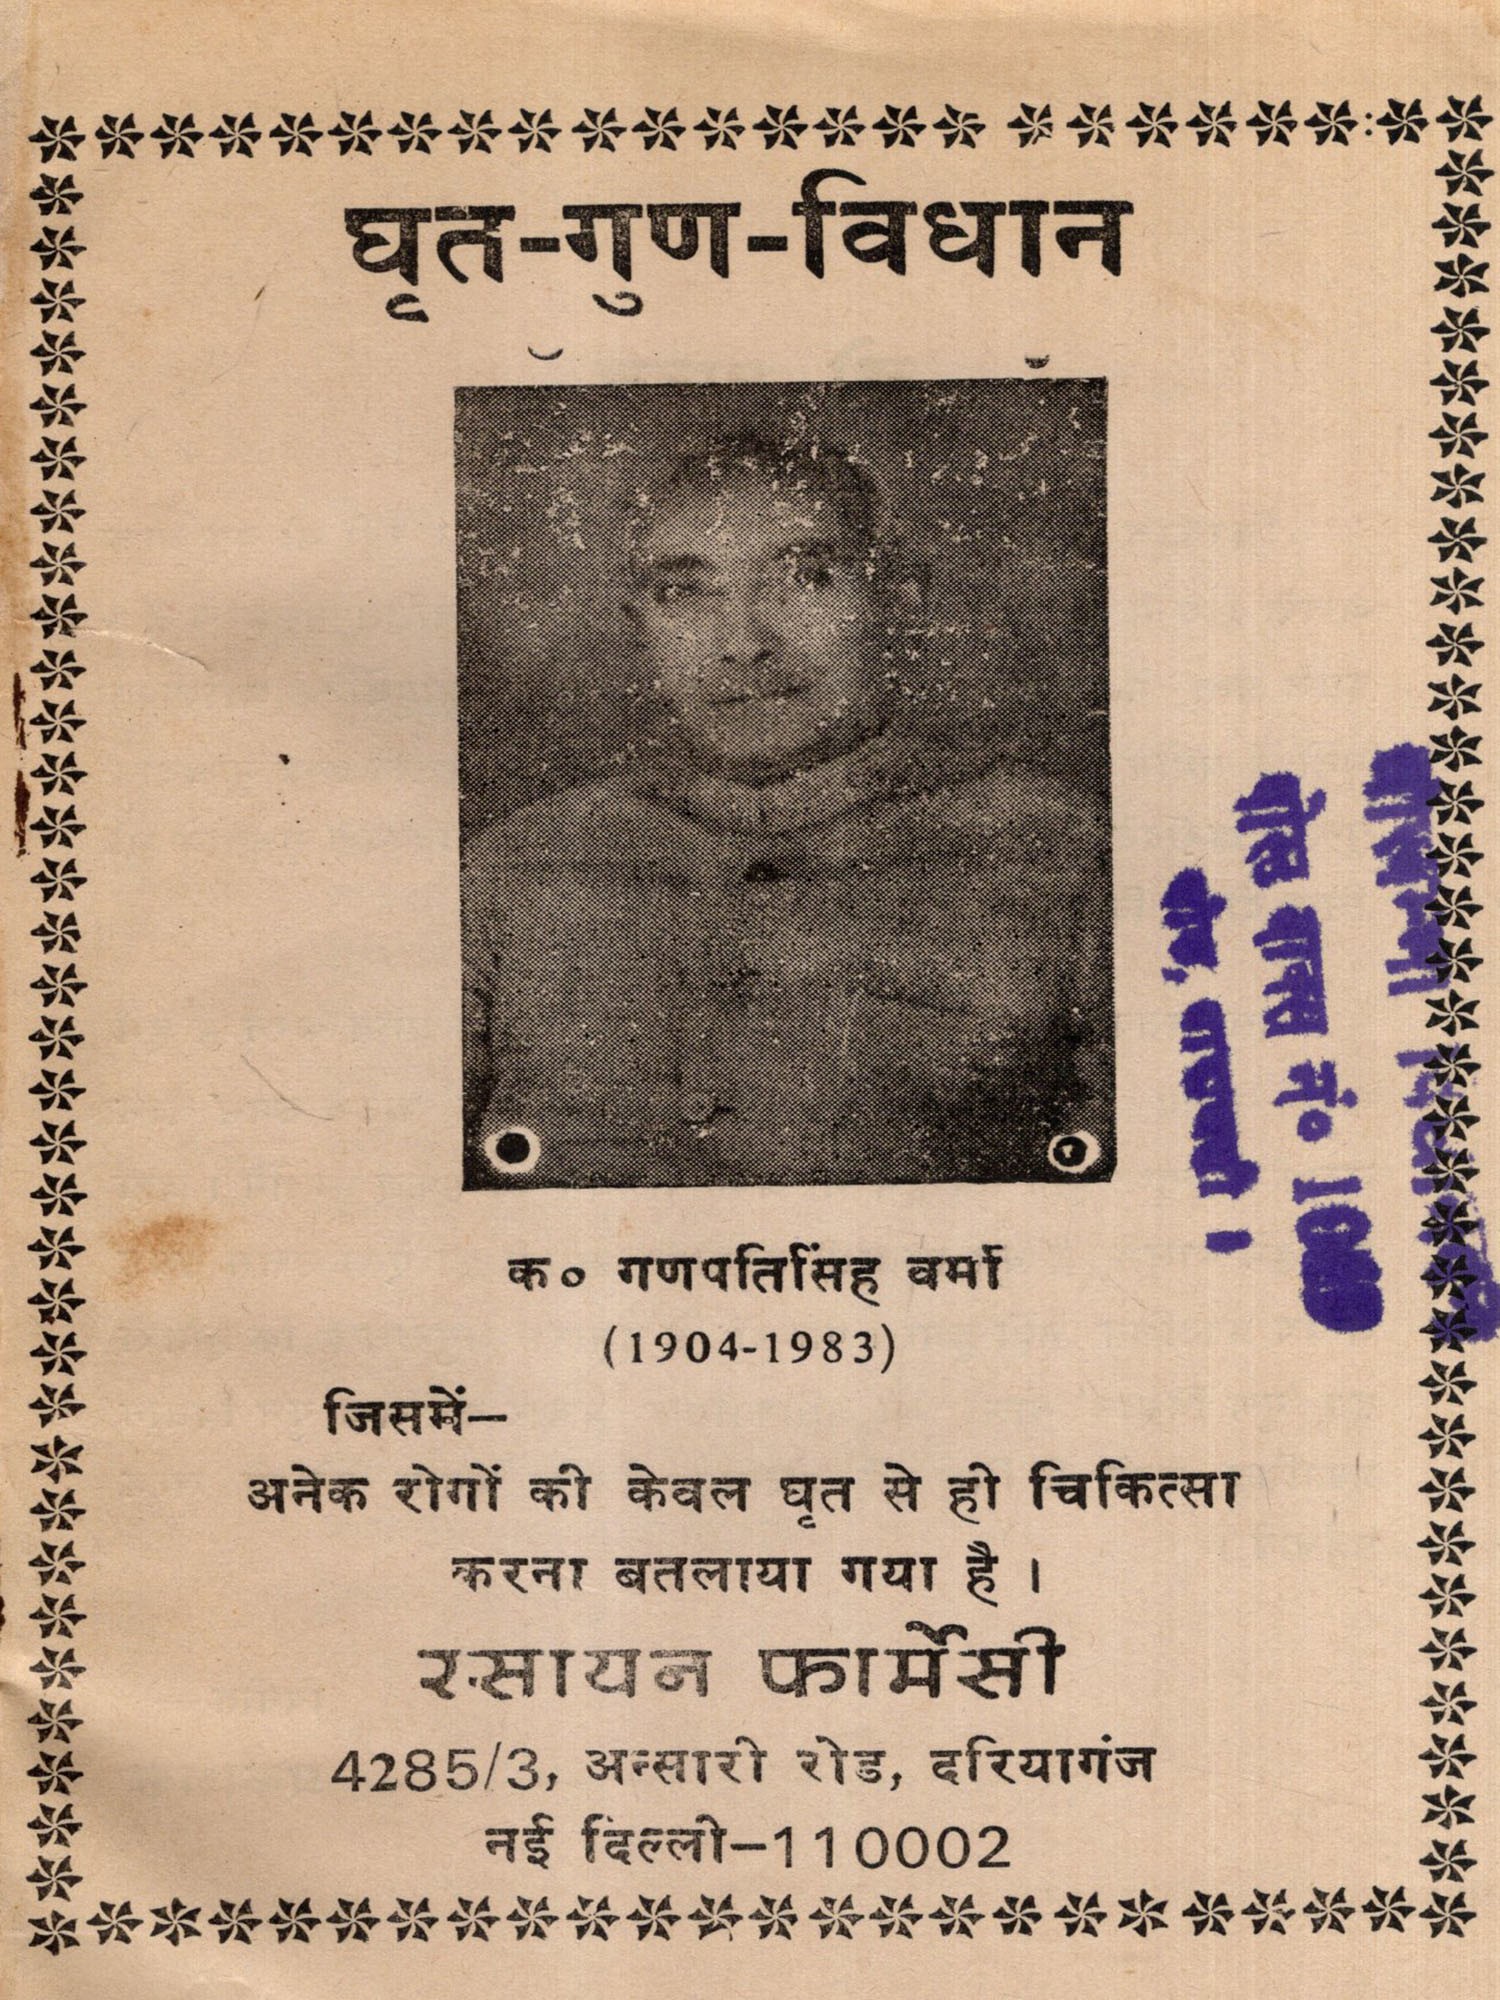 घृत-गुण-विधान
क० गणपतिसिंह वर्मा
(1904-1983)
जिसमें—
अनेक रोगों की केवल घृत से ही चिकित्सा
करना बतलाया गया है ।
रसायन फार्मेसी
4285/3, अन्सारी रोड, दरियागंज
नई दिल्ली—110002
नं०